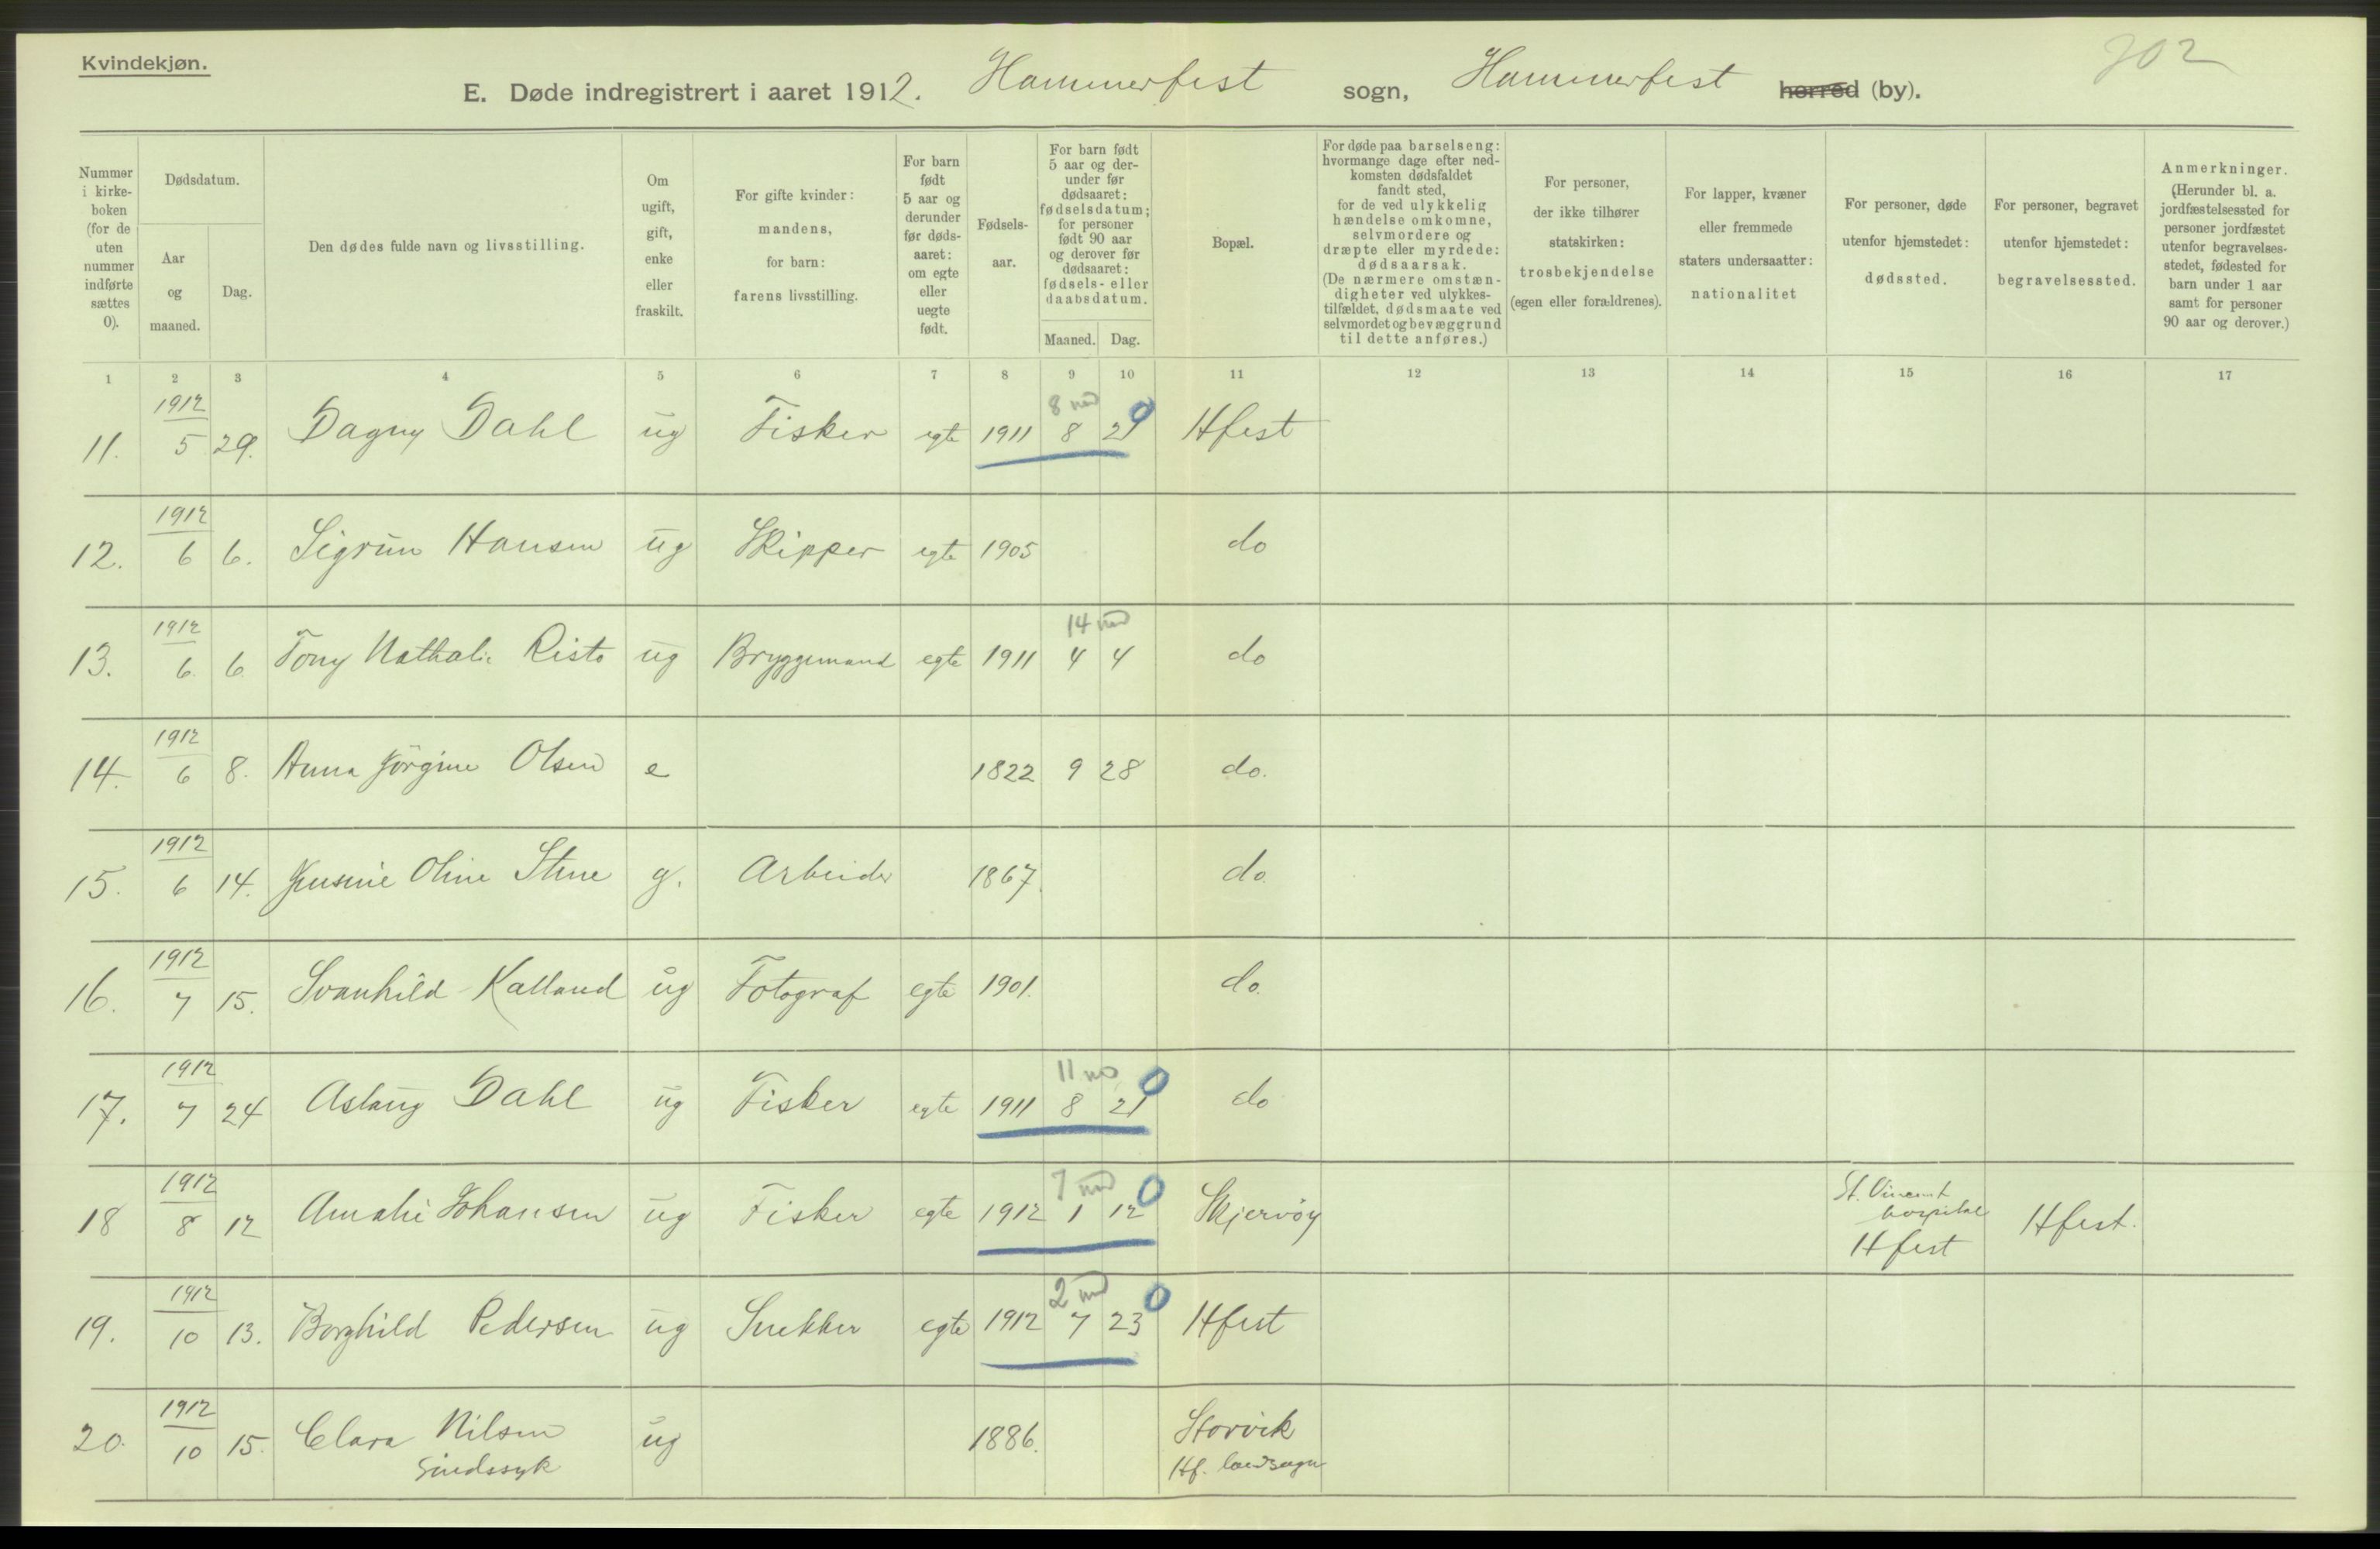 Kvindekjøn.
202
E. Døde indregistrert i aaret 1912. Hammerfest sogn, Hammerfest herred (by).
Nummer i kirke- boken (for de uten nummer indførte sættes 0).
Dødsdatum.
Aar og maaned.
Dag.
Den dødes fulde navn og livsstilling.
Om ugift, gift, enke eller fraskilt.
For gifte kvinder: mandens, for barn: farens livsstilling.
For barn født 5 aar og derunder før døds- aaret: om egte eller uegte født.
Fødsels- aar.
For barn født 5 aar og der- under før dødsaaret: fødselsdatum; for personer født 90 aar og derover før dødsaaret: fødsels- eller daabsdatum.
Maaned. Dag.
Bopæl.
For døde paa barselseng: hvormange dage efter ned- komsten dødsfaldet fandt sted, for de ved ulykkelig hændelse omkomne, selvmordere og dræpte eller myrdede: dødsaarsak. (De nærmere omstæn- digheter ved ulykkes- tilfældet, dødsmaate ved selvmordet og bevæggrund til dette anføres.)
For personer, der ikke tilhører statskirken: trosbekjendelse (egen eller forældrenes).
For lapper, kvæner eller fremmede staters undersaatter: nationalitet
For personer, døde utenfor hjemstedet: dødssted.
For personer, begravet utenfor hjemstedet: begravelsessted.
Anmerkninger. (Herunder bl. a. jordfæstelsessted for personer jordfæstet utenfor begravelses- stedet, fødested for barn under 1 aar samt for personer 90 aar og derover.)
1 2 3 4 5 6 7 8 9 10 11 12 13 14 15 16 17
1912 8 md 0
11. 5 29. Dagny Dahl ug Fisker egte 1911 8 21 Hfest
1912
12. 6 6. Sigrun Hansen ug Skipper egte 1905 do
1912 14 md
13. 6 6 Tony Nathalie Risto ug Bryggemand egte 1911 4 4 do
1912
14. 6 8. Anna Jörgine Olsen e 1822 9 28 do.
1912
15. 6 14. Jensine Oline Stene g. Arbeider 1867. do.
1912
16. 7 15. Svanhild Kalland ug Fotograf egte 1901. do.
1912 11 md 0
17. 7 24 Aslaug Dahl ug Fisker egte 1911 8 21 do
1912 7 md 0 St. Vincent
18 8 12 Amalie Johansen ug Fisker egte 1912 1 12 Skjervöy hospital Hfest.
Hfest
1912 2 md 0
19. 10 13. Borghild Pedersen ug Snekker egte 1912 7 23 Hfest
1912
20. 10 15. Clara Nilsen ug 1886. Storvik
Sindssyk Hf. landsogn